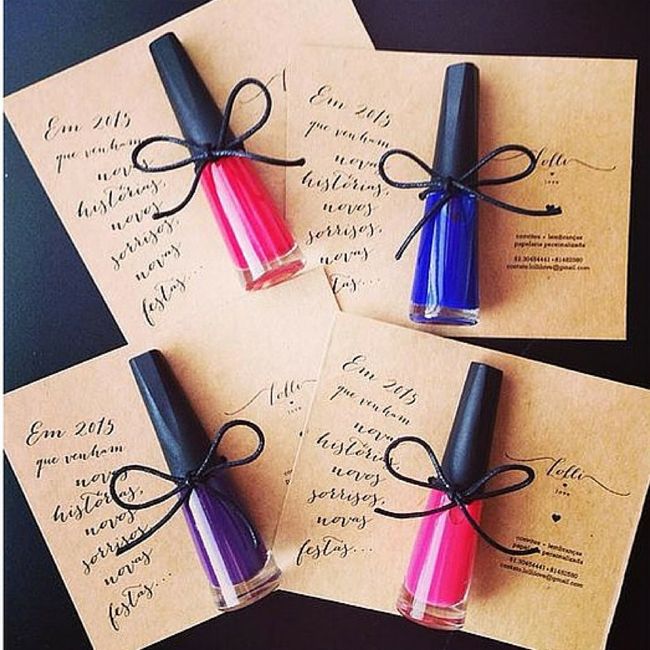 Em 2015
que venham
novas
histórias,
novos
sorrisos,
novas
festas...
Em 2015
que venham
novas
histórias,
novos
sorrisos,
novas
festas...
Lolli
love
convites + lembranças
papelaria personalizada
81.30454441 + 81482580
contato.lollilove@gmail.com
Em 2015
que venham
novas
histórias,
novos
sorrisos,
novas
festas...
Lolli
love
Em 2015
que venham
novas
histórias,
novos
sorrisos,
novas
festas...
Lolli
love
convites + lembranças
papelaria personalizada
81.30454441 + 81482580
contato.lollilove@gmail.com